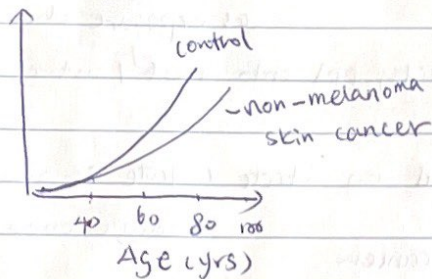 control
non-melanoma
skin cancer
40 60 80 100
Age (yrs)